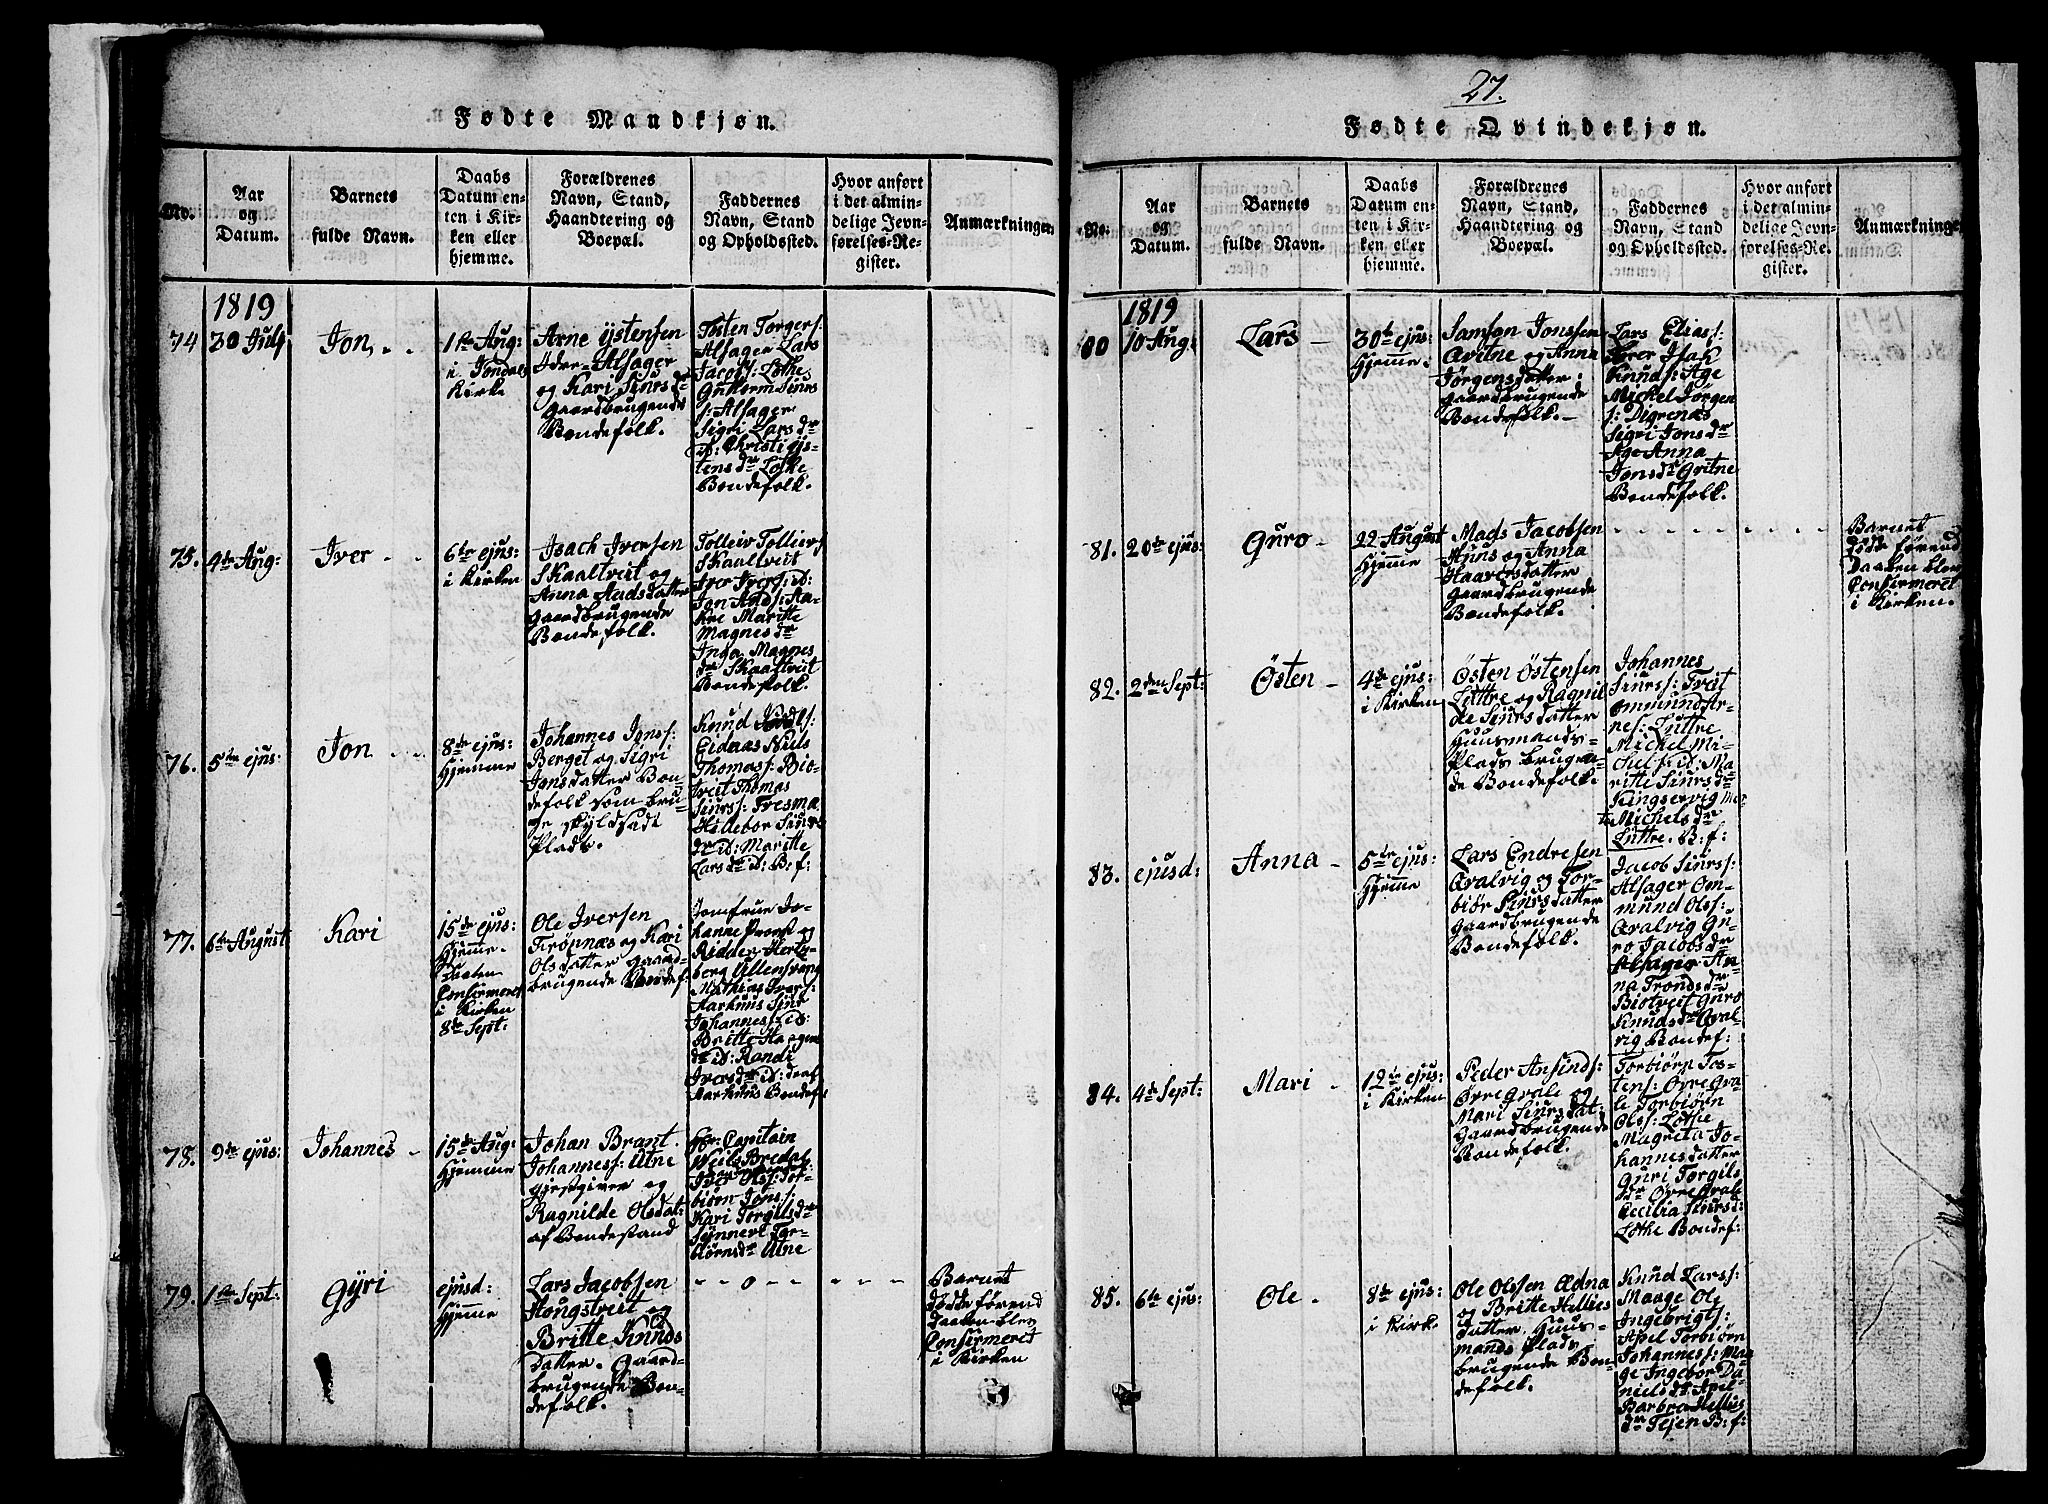 Fødte Mandkjøn.
No.
Aar
og
Datum.
Barnets
fulde Navn.
Daabs
Datum en-
ten i Kir-
ken eller
hjemme.
Forældrenes
Navn, Stand,
Haandtering og
Boepæl.
Faddernes
Navn, Stand
og Opholdssted.
Hvor anført
i det almin-
delige Jevn-
førelses-Re-
gister.
Anmærkninger
1819
74
30 July
Jon,
1ste Aug:
i Jondals
Kirke
Arne Ystensen
Alsager
og Kari Siursdr
Gaardbrugende
Bondefolk.
Tosten Torgers:
Alsager Lars
Jacobs: Lothe
Guttorm Siurs
s: Alsager
Sigri Larsdr
id: Christi Ys-
tensdr Lothe
Bondefolk.
75.
4de Aug:
Iver
6te ejus:
i Kirken
Isach Iversen
Skaaltveit og
Anna Aadsdatter
Gaardbrugende
Bondefolk.
Tolleiv Tolleivs
Skaaltveit
Iver Ivers: id:
Jon Aads: Aa-
kre Maritte
Magnesdr
Inga Magnes
dr Skaaltveit
Bondefolk.
76.
5te ejus:
Jon
8de ejus:
Hjemme
Johannes Jons:
Berget og Sigri
Jonsdatter Bon-
defolk som bru-
ge skyldsadt
Plads.
Knud
Eidnæs Niels
Thomas: Bio-
tveit Thomas
Siurs: Tresma
Hildebor Siurs
dr id: Maritte
Larsdr id: B: f:
77.
6te August
Kari
15de ejus:
Hjemme.
Daaben
Confirmeret
i Kirken
8de Sept:
Ole Iversen
Trøpnæs og Kari
Olsdatter Gaard-
brugende Bondef.
Jomfrue Jo-
hanne Provst
Ridder Hertz-
berg Ullensvang
Mathias Ivers:
Aarhuus Siur
Johannes: id:
Britte Haagen
dr id: Randi
Iversdr id:
Aarhuus Bondef:
78.
9de ejus:
Johannes
15de Aug:
Hjemme
Johan Brant
Johanness: Utne
Gjestgiver og
Ragnilde Olsdat:
af Bondestand
Hr: Capitain
Niels Bredal
Iver Ols: Tor-
biørn Jons:
Kari Torgilsdr
Synnerl Tor-
biørnsdr Utne
79.
1ste Sept:
Gyri
ejusd:
Hjemme
Lars Jacobsen
Hougstveit og
Britte Knuds
datter. Gaard-
brugende Bon-
defolk.
- - o - - - - -
Barnet
døde førend
Daaben blev
Confirmeret
i Kirken
27.
Fødte Qvindekjøn.
No.
Aar
og
Datum.
Barnets
fulde Navn.
Daabs
Datum en-
ten i Kir-
ken eller
hjemme.
Forældrenes
Navn, Stand,
Haandtering og
Boepæl.
Faddernes
Navn, Stand
og Opholdssted.
Hvor anført
i det almin-
delige Jevn-
førelses-Re-
gister.
Anmærkninge
1819
80
10 Aug:
Lars
30te ejus:
Hjemme.
Samson Jonssen
Qvitne og Anna
Jørgensdatter
Gaardbrugende
Bondefolk.
Lars Elias:
Isak
Knuds: Age
Michel Jørgen
s: Digrenæs
Sigri Jonsdr
Age Anna
Jonsdr Qvitne
Bondefolk.
81.
20de ejus:
Guro
22 August
Hjemme
Mads Jacobsen
Huns og Anna
Haavorsdatter
Gaardbrugende
Bondefolk.
- - - - - - - -
Barnet
døde førend
Daaben blev
Confirmeret
i Kirken.
82.
2den Sept:
Østen
4de ejus:
i Kirken
Østen Østensen
Lutre og Ragnil
de Siursdatter
Huusmands-
Plads brugen-
de Bondefolk.
Johannes
Siurs: Treit
Ommund Ar-
nes: Luttre
Michel Mi-
chels: id: Ma-
ritte Siursdr
Kingservig Mar
te Michelsdr
Luttre. B: f:
83.
ejusd:
Anna
5te ejus:
Hjemme
Lars Endresen
Qvalvig og Tor-
biør Siursdatter
Gaardbrugende
Bondefolk.
Jacob Siurs:
Alsager Om-
mund Ols:
Qvalvig Gu-
ro Jacobsdr
Alsager An-
na Trondsdr
Biotveit Guro
Knudsdr Qval-
vig Bondef:
84.
4de Sept:
Mari
12te ejus:
i Kirken
Peder Amunds:
Øvre Qvale og
Mari Siursdat:
Gaardbrugende
Bondefolk.
Torbiørn Tos-
tens: Øvre Qva-
le Torbiørn
Ols: Lothe
Magreta Jo-
hannesdatter
Guri Torgils
dr Øvre Qvale
Cecilia Siursd:
Lothe Bondef:
85.
6te ejus:
Ole
8de ejus:
i Kirk.
Ole Olssen Ædna
og Britte Hellies
datter. Huus-
mands Plads
brugende Bon-
defolk.
Knud Lars:
Maage Ole
Ingebrigt:
Apel Torbiørn
Johannes: Maa
ge Ingebor Da-
nielsdr Apel
Barbra Hellies
dr Tejen B: f: